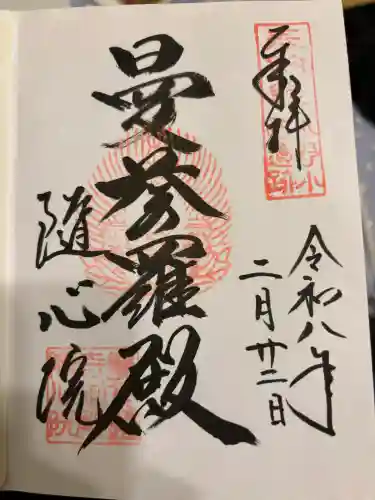 奉拝
令和八年
二月廿二日
曼荼羅殿
随心院